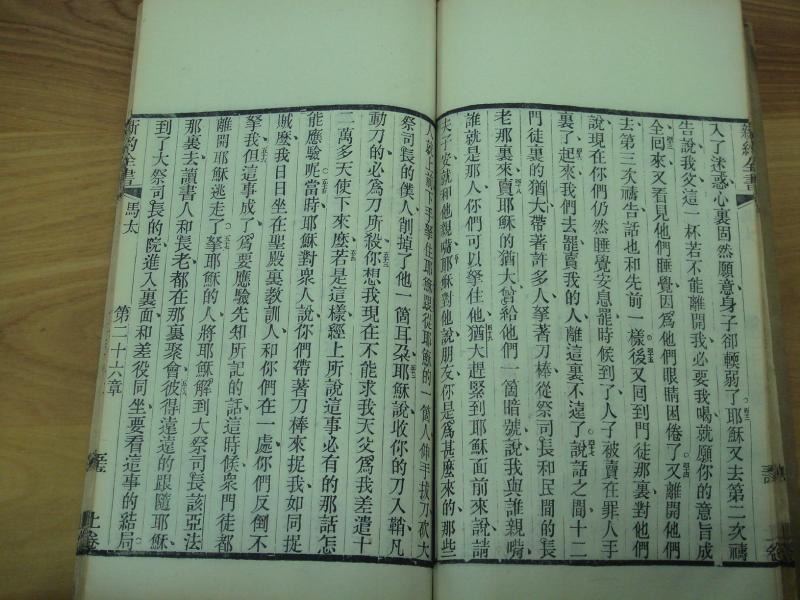 新約全書
入了迷惑、心裏固然願意、身子卻輭弱了、耶穌又去第二次禱
告說、我父、這一杯若不能離開我、必要我喝、就願你的意旨成
全、回來又看見他們睡覺、因爲他們眼睛困倦了、又離開他們
去第三次禱告、話也和先前一樣、後又回到門徒那裏、對他們
說、現在你們仍然睡覺安息罷、時候到了、人子被賣在罪人手
裏了、起來、我們去罷、賣我的人離這裏不遠了、說話之間、十二
門徒裏的猶大、帶著許多人、拏著刀棒、從祭司長和民間的長
老那裏來、賣耶穌的猶大、曾給他們一箇暗號、說、我與誰親嘴、
誰就是那人、你們可以拏住他、猶大趕緊到耶穌面前來、說、請
夫子安、就和他親嘴、耶穌對他說、朋友、你是爲甚麼來的、那些
人就上前、下手拏住耶穌、跟從耶穌的一箇人、伸手拔刀、砍大
祭司長的僕人、削掉了他一箇耳朶、耶穌說、收你的刀入鞘、凡
動刀的、必爲刀所殺、你想我現在不能求我天父、爲我差遣十
二萬多天使下來麼、若是這樣、經上所說、這事必有的那話、怎
能應驗呢、當時耶穌對衆人說、你們帶著刀棒來捉我、如同捉
賊麼、我日日坐在聖殿裏敎訓人、和你們在一處、你們反倒不
拏我、但這事成了、爲要應驗先知所記的話、這時候衆門徒都
離開耶穌逃走了、拏耶穌的人、將耶穌解到大祭司長該亞法
那裏去、讀書人和長老都在那裏聚會、彼得遠遠的跟隨耶穌、
到了大祭司長的院、進入裏面、和差役同坐、要看這事的結局。
新約全書 馬太 第二十六章 上卷